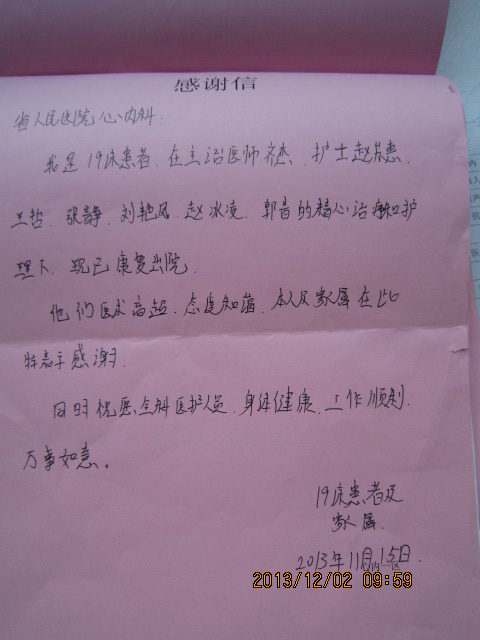 感谢信
省人民医院心内科:
我是19床患者、在主治医师齐杰、护士赵
兰哲、张静、刘艳凤、赵冰凌、郭音的精心治疗和护
理下、现已康复出院.
他们医术高超、态度和蔼、本人及家属在此
特表示感谢.
同时祝愿全科医护人员、身体健康、工作顺利.
万事如意。
19床患者及
家属.
2013年11月15日.
2013/12/02 09:59